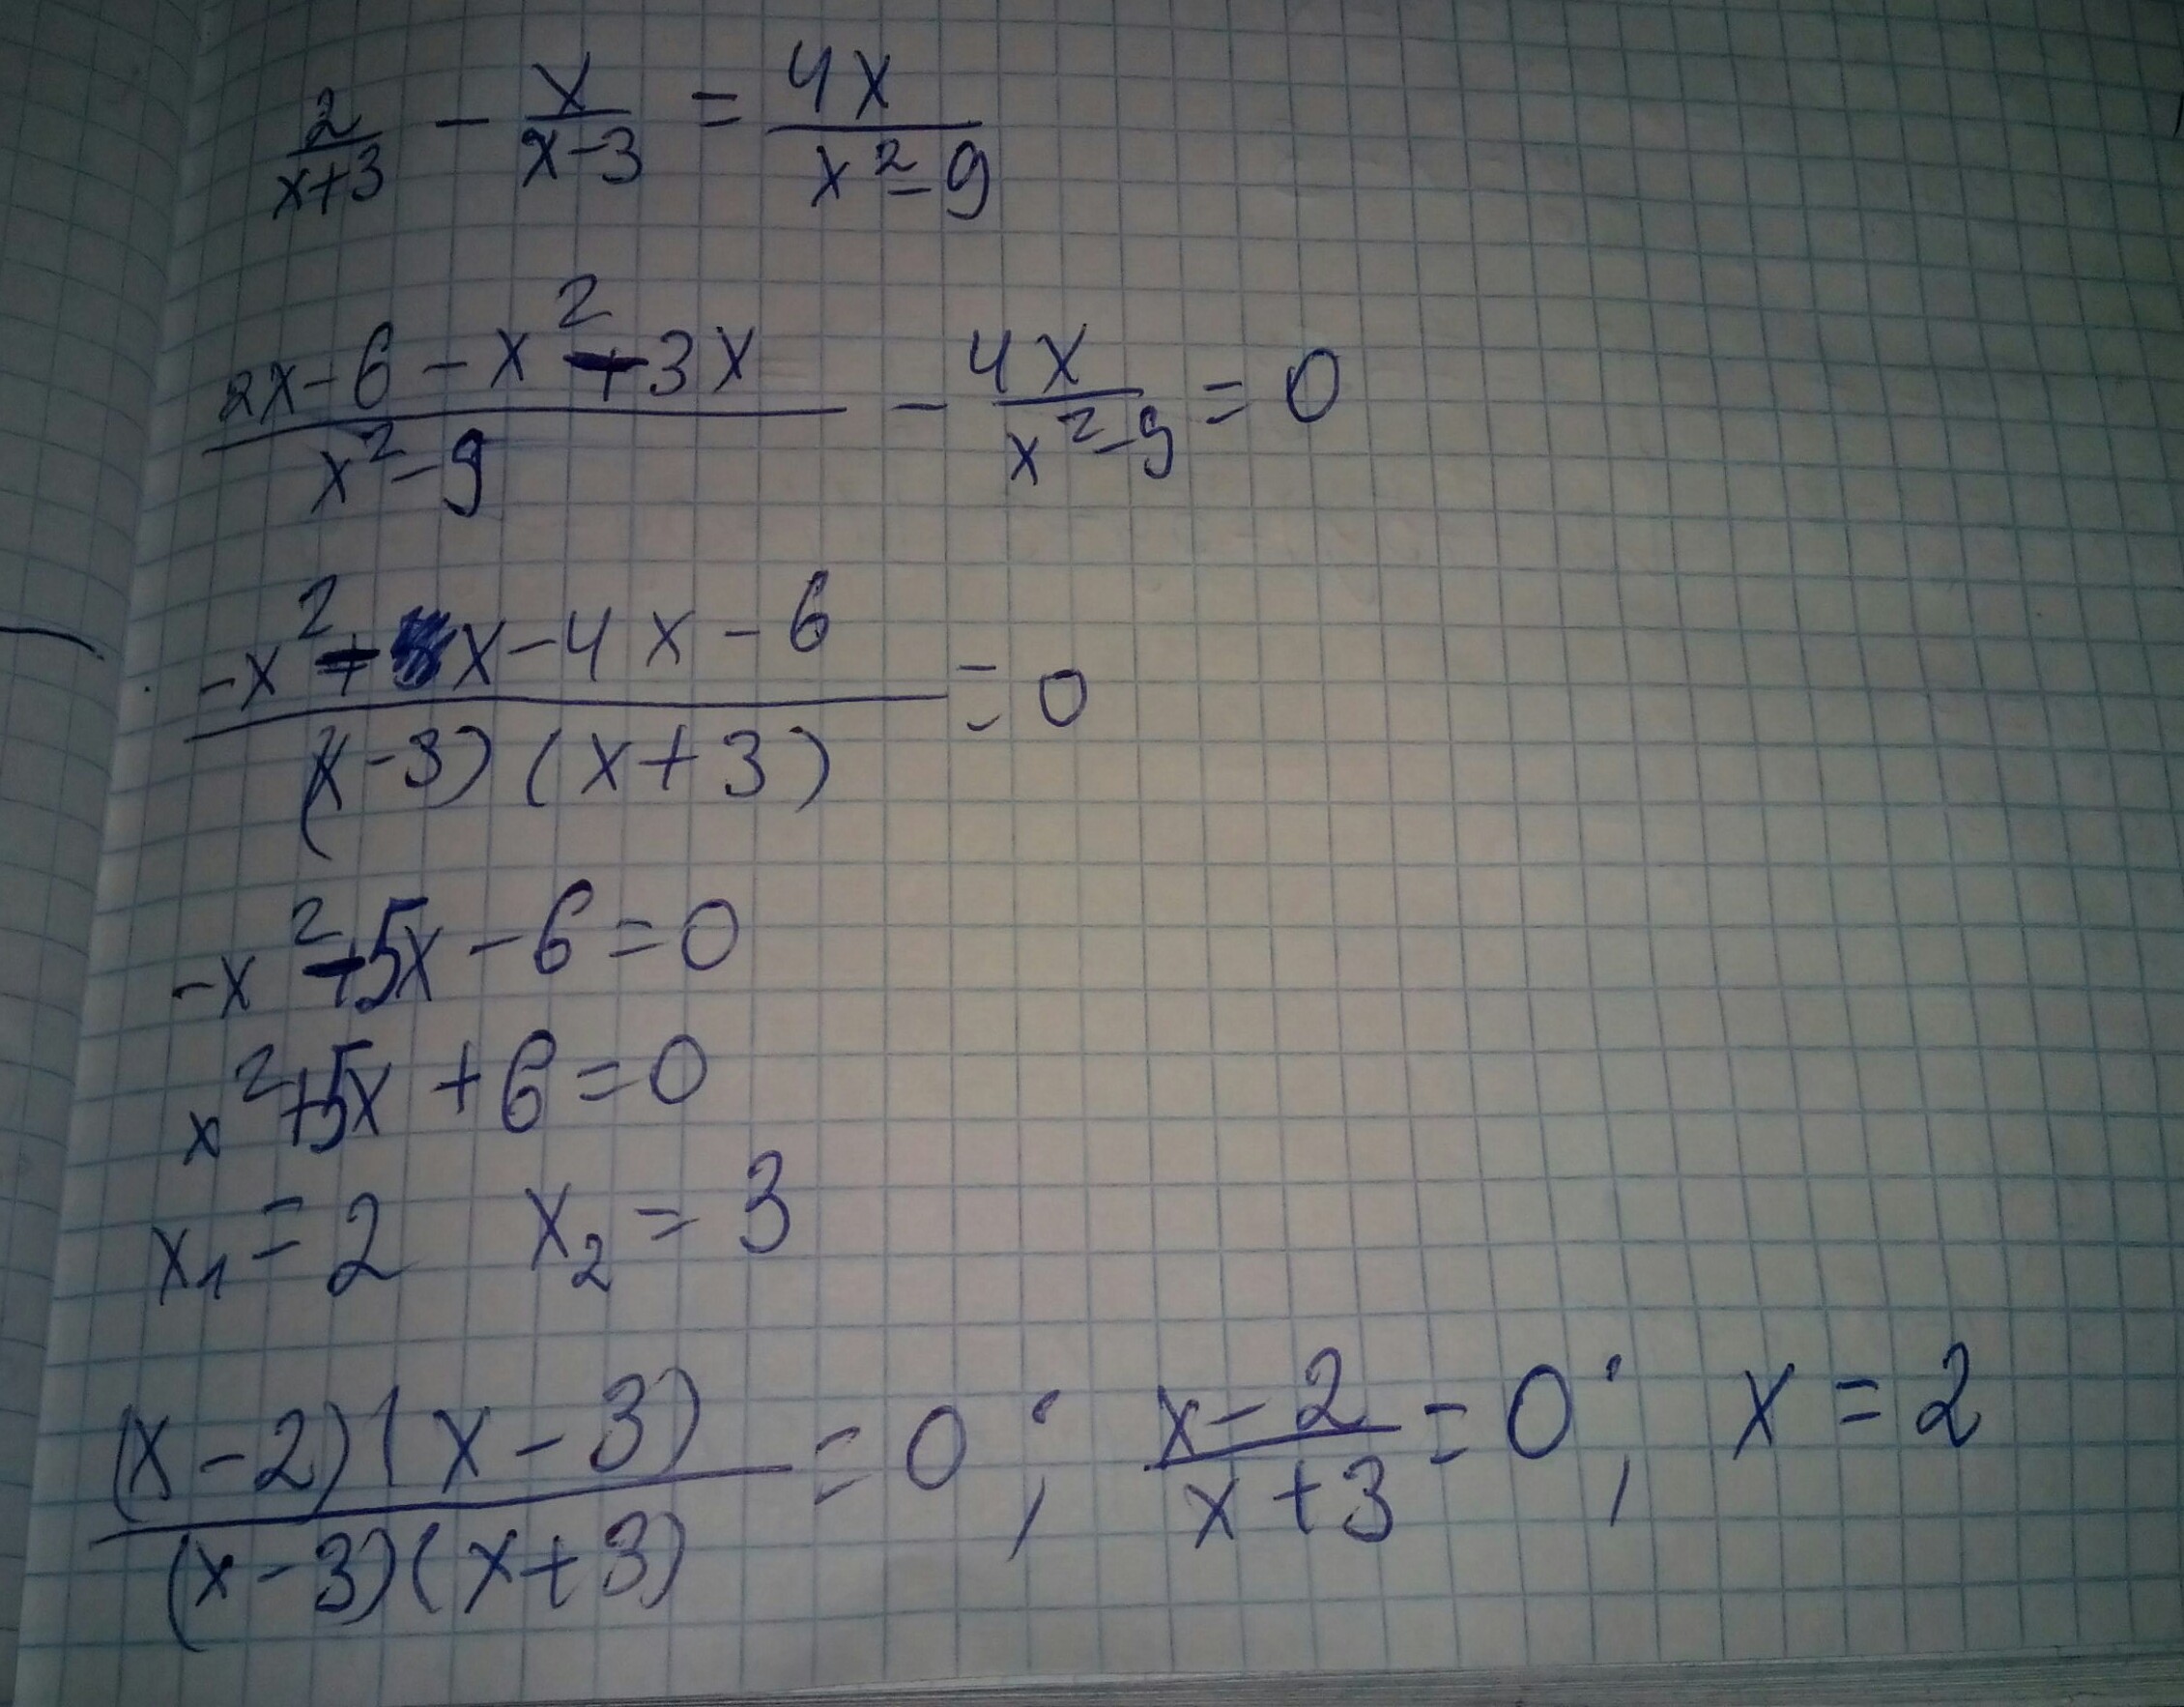 2/(x+3) - x/(x-3) = 4x/(x²-9)
(2x-6-x²-3x)/(x²-9) - 4x/(x²-9) = 0
(-x²-x-4x-6)/((x-3)(x+3)) = 0
-x²-5x-6=0
x²+5x+6=0
x₁=2 x₂=3
((x-2)(x-3))/((x-3)(x+3)) = 0; (x-2)/(x+3) = 0; x=2